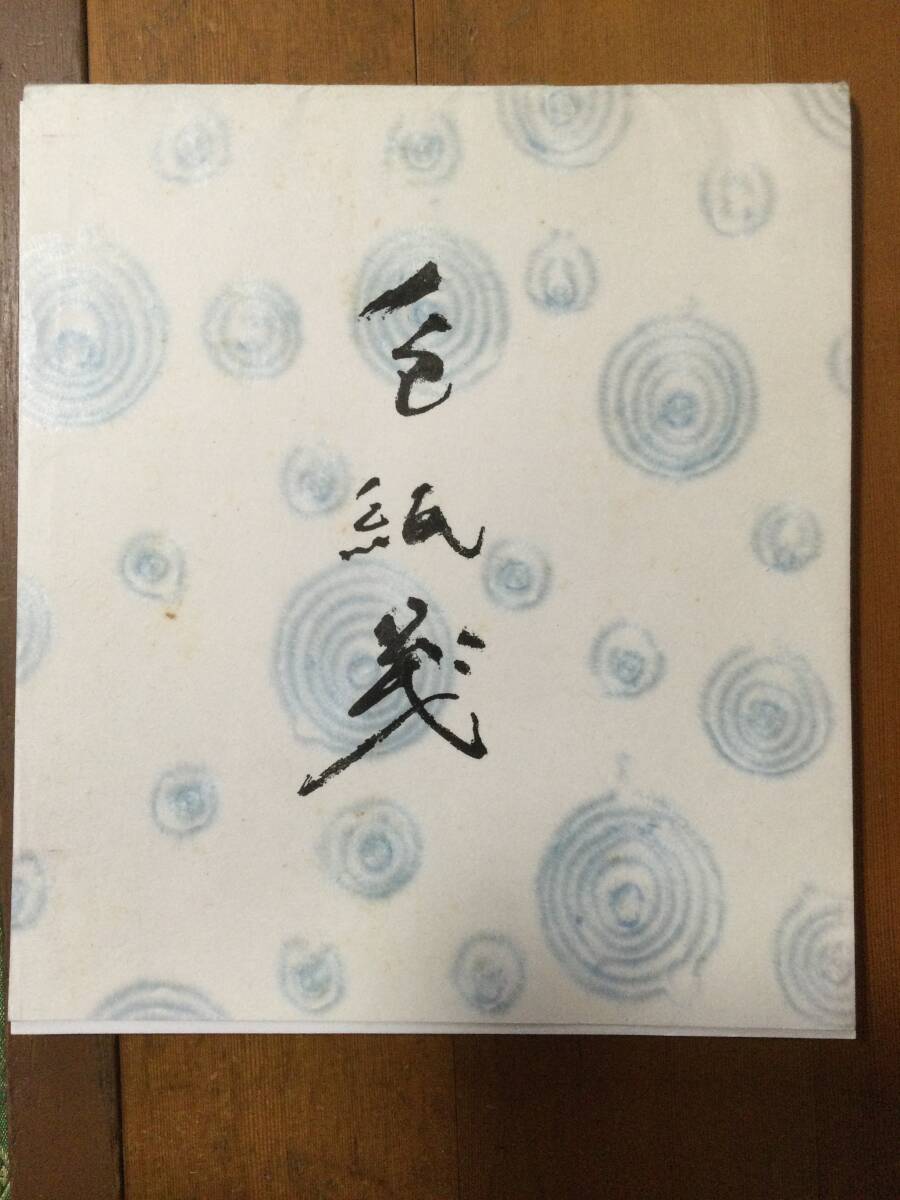 色紙箋